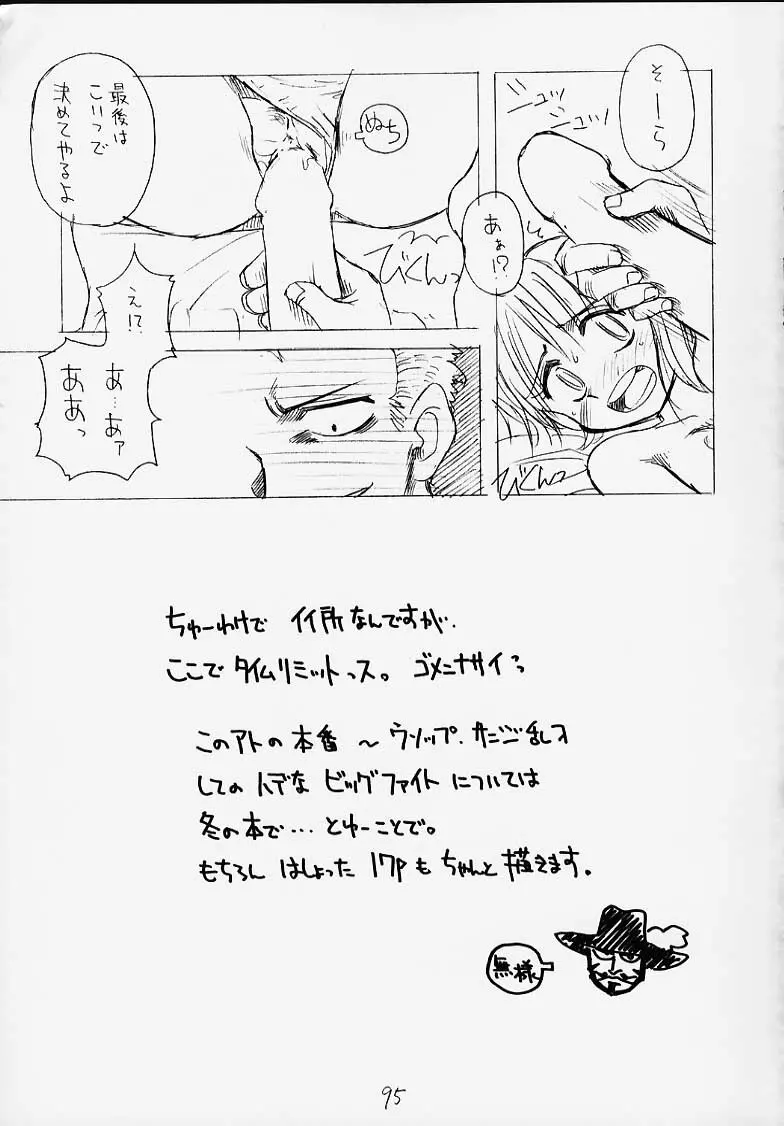 そーら
ジュッ
ジュッ
あぁ!?
びくんっ
最後は
こいつで
決めてやるよ
ぬち
びくんっ
え!?
あ…あァ
ああっ
ちゅーわけで イイ所なんですが、
ここで タイムリミットっス。ゴメンナサイっ
このアトの 本番 〜 ウソップ、サンジ乱入
しての ハデな ビッグファイト については
冬の本で… とゆーことで。
もちろん はしょった 17Pも ちゃんと 描きます。
無様
95